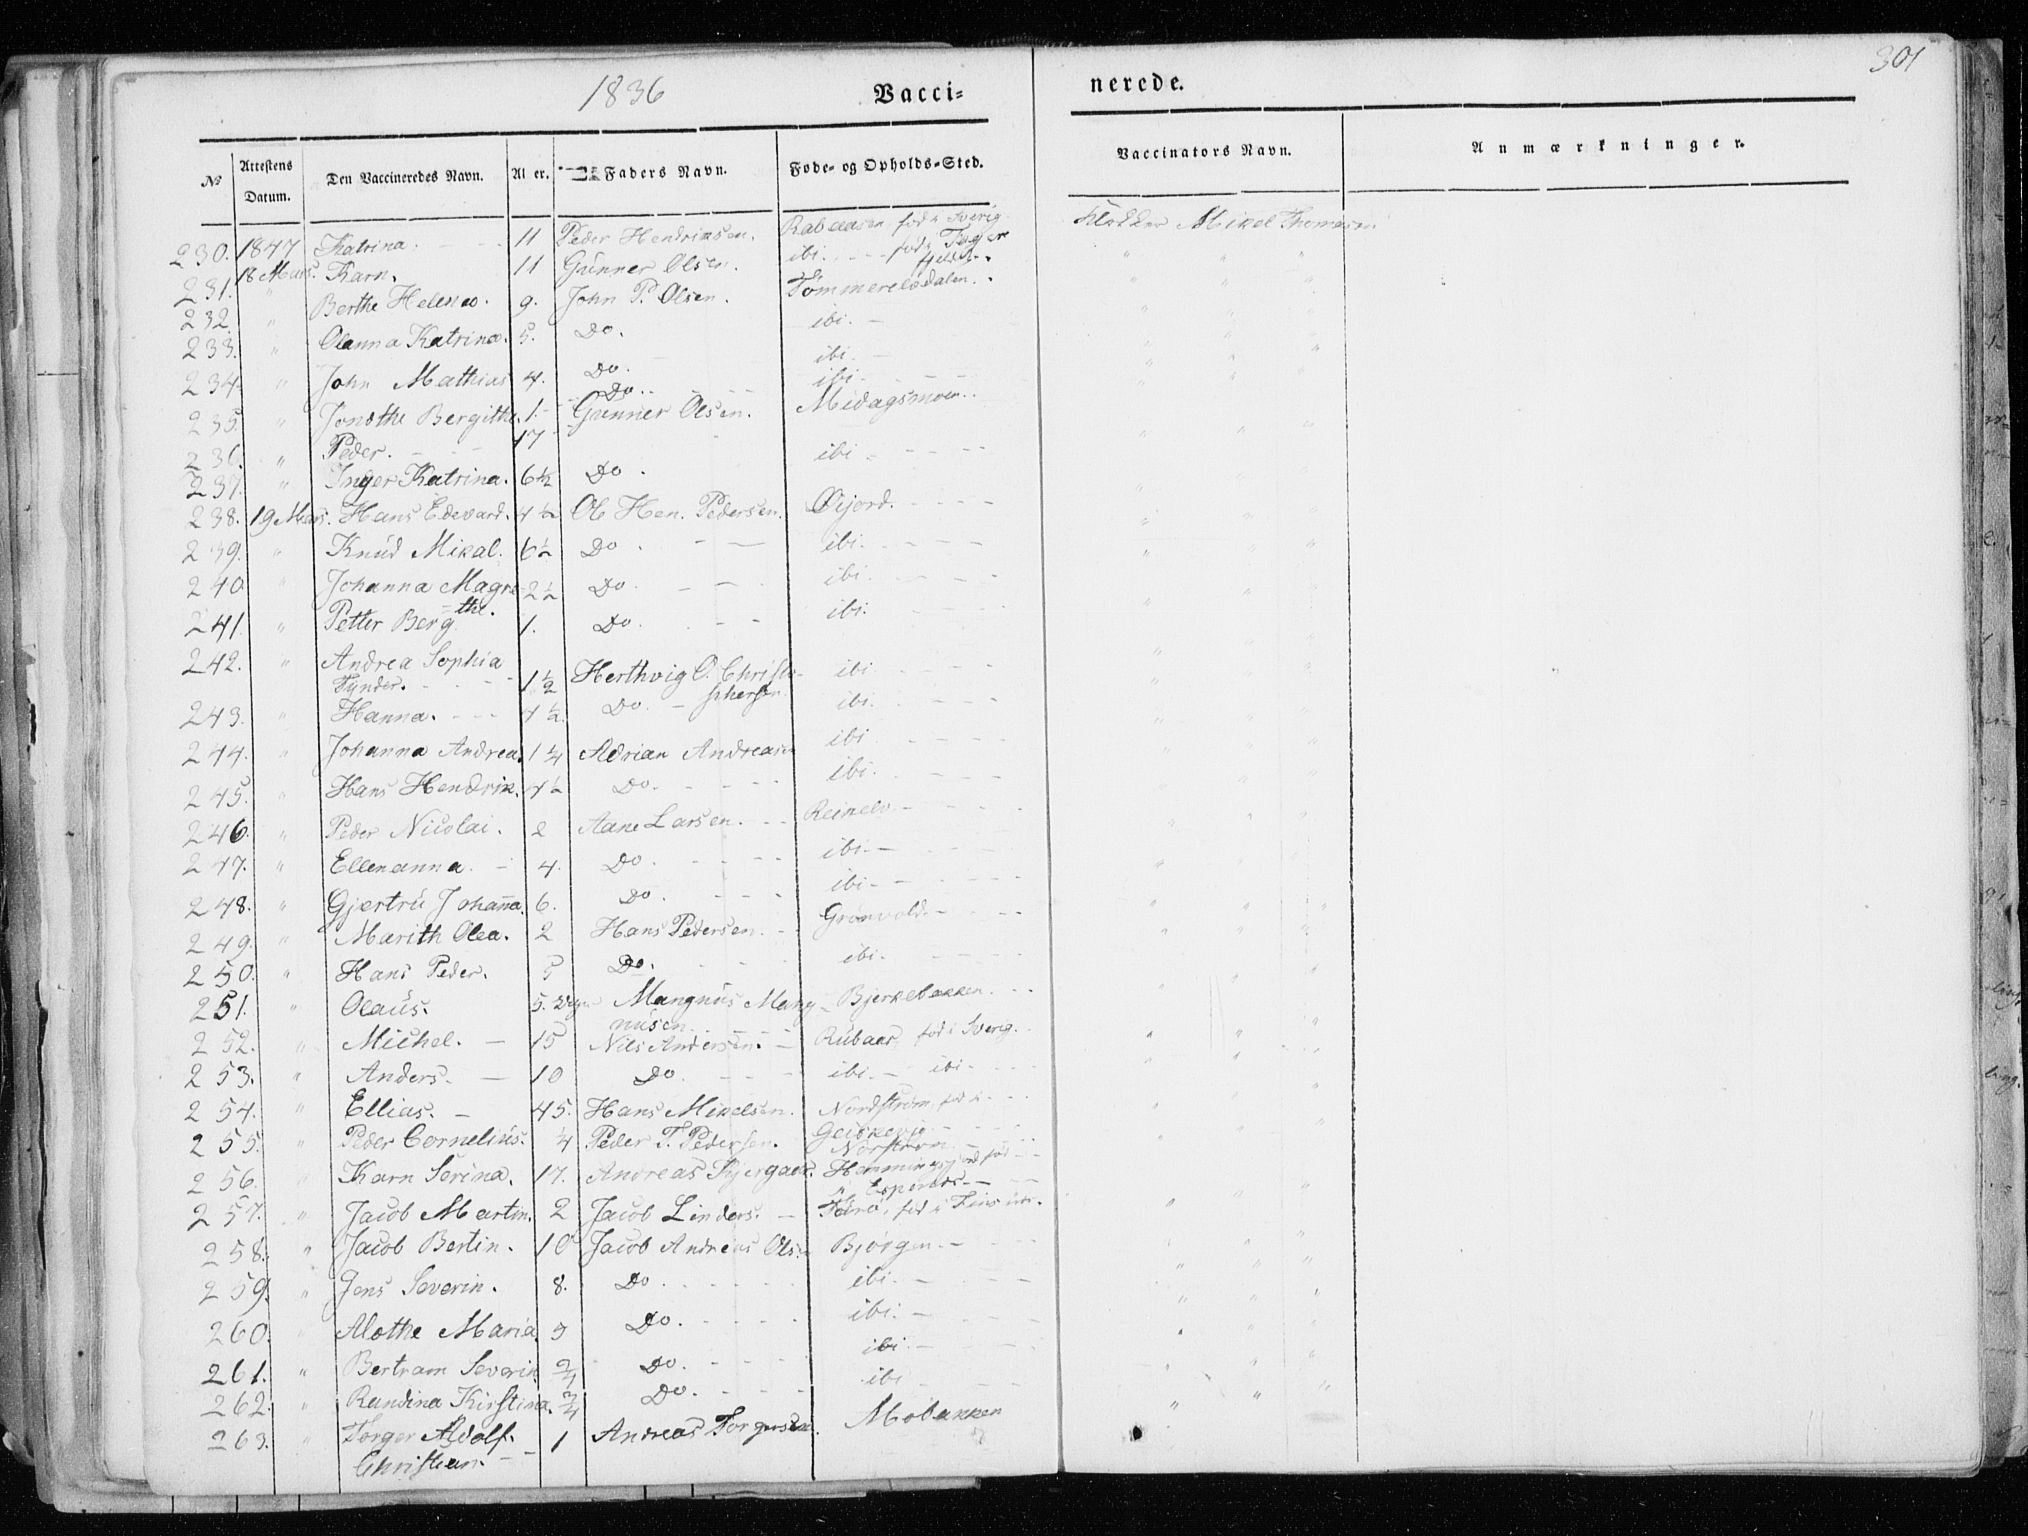 301
1836 Vacci= nerede.
№ Attestens Datum. Den Vaccineredes Navn. Al er. Faders Navn. Føde- og Opholds-Sted. Vaccinators Navn. Anmærkninger.
230. 1847 Katrina. 11 Peder Hendriksen. fød i Sverig Klokker Mikel Thomesen
231. 18 Mars. Karn. 11 Gunner Olsen. ibi. fød i
232. " Berthe Helene. 9. John P. Olsen.
233. " Olanna Katrina. 5. Do. ibi.
234. " John Mathias 4. Do. ibi.
235. " Bergithe. 1. Do. ibi.
236. " Peder. 17 Gunner Olsen. Midagsmoen.
237. " Inger Katrina. 6½ Do. ibi.
238. 19 Mars. Hans Edevard. 4½ Ol Hen. Pedersen. Øijord.
239. " Knud Mikal. 6½ Do. ibi.
240 " Johanna Magre- the. 2½ Do. ibi.
241. " Petter Berg. 1. Do. ibi.
242. " Andrea Sophia
Tynder. 1½ Herthvig O. Christo-
phersen ibi.
243. " Hanna. 4½. Do. ibi.
244. " Johanna Andrea. 1¼ Adrian Andreasen ibi
245. " Hans Hendrik. 4½ Do. ibi.
246. " Peder Nicolai. 2 Aane Larsen. Reinelv
247. " Ellenanna. 4. Do. ibi.
248. " Gjertru Johanna. 6. Do. ibi.
249. " Marith Olea. 2 Hans Pedersen. Grönvold.
250. " Hans Peder. 5 Do. ibi.
251. " Olaus. 5. Mangnus Mang-
nusen Bjerkebakken.
252. " Michel. 15 Nils Andersen. Rubaas, fød i Sverig.
253. " Anders. 10 Do ibi. ibi.
254. " Ellias. 45. Hans Mikelsen. Nordström, fød i
255. " Peder Cornelius. ¼ Peder T. Pedersen.
256. " Karn Serina. 17. Andreas fød
257. " Jacob Martin. 2 Jacob Linders. fød i
258. " Jacob Bertin. 10 Jacob Andreas Olsen Bjørgen.
259. " Jens Severin. 8. Do. ibi.
260. " Alothe Maria. 5 Do. ibi.
261. " Bertram Severin 2/4 Do. ibi.
262. " Randina Kirstina. ¾ Do. ibi
263. " Torger Adolf.
Christian. 1 Andreas Torgersen. Mobakken